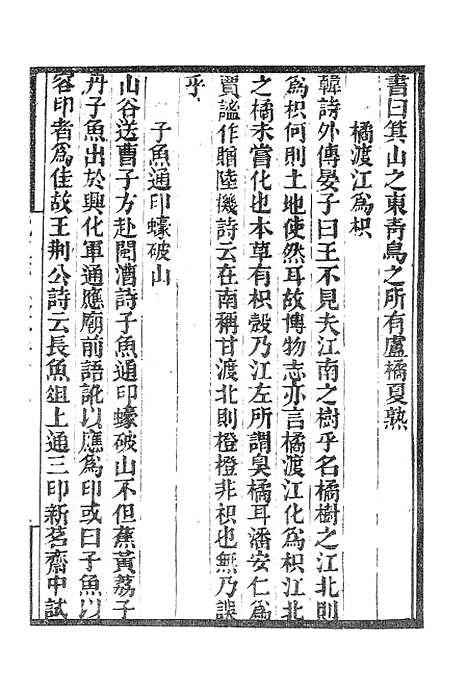 書曰箕山之東青鳥之所有盧橘夏熟
橘渡江爲枳
韓詩外傳晏子曰王不見夫江南之樹乎名橘樹之江北則
爲枳何則土地使然耳故博物志亦言橘渡江化爲枳江北
之橘未嘗化也本草有枳殼乃江左所謂臭橘耳潘安仁爲
賈謐作贈陸機詩云在南稱甘渡北則橙橙非枳也無乃誤
乎
子魚通印蠔破山
山谷送曹子方赴閩漕詩子魚通印蠔破山不但蕉黃荔子
丹子魚出於興化軍通應廟前語訛以應爲印或曰子魚以
容印者爲佳故王荆公詩云長魚俎上通三印新茗齋中試